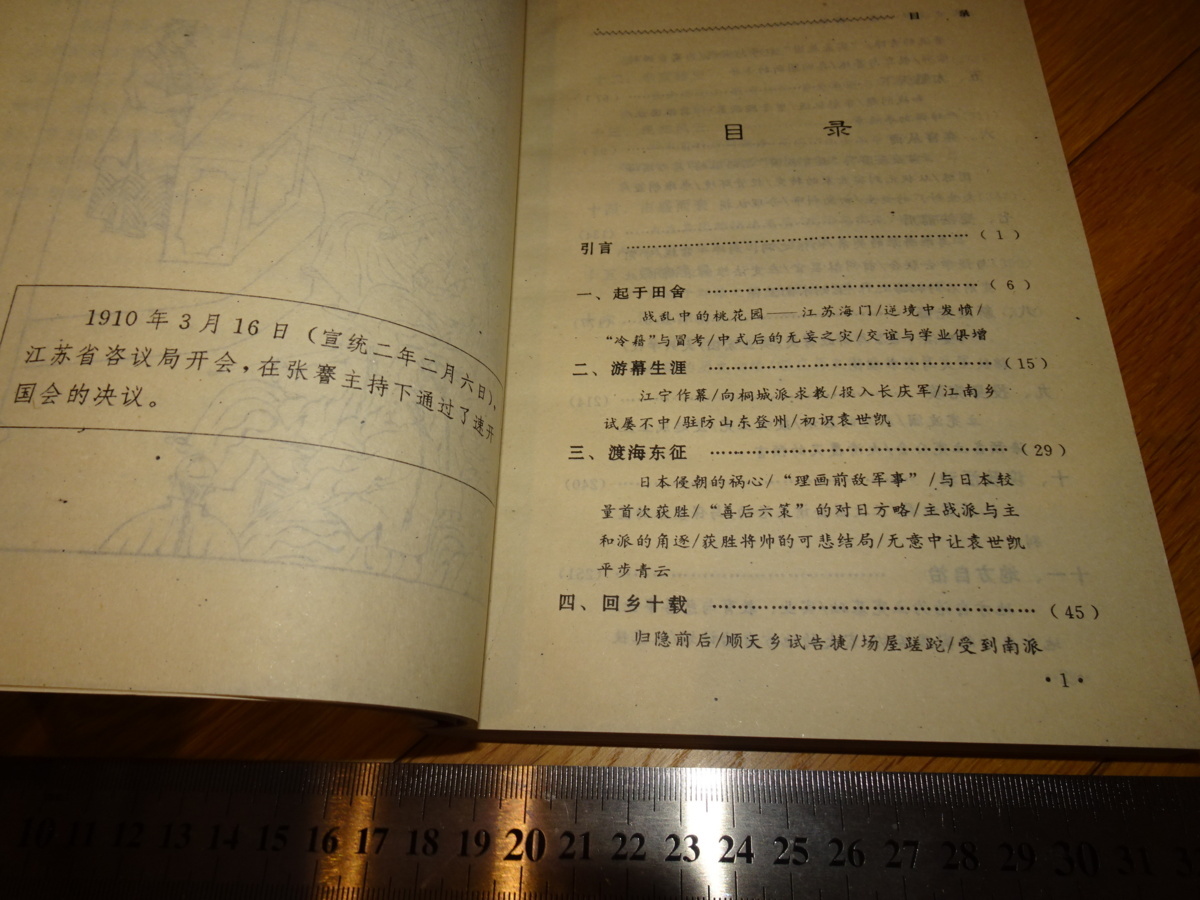 1910年3月16日（宣统二年二月六日），
江苏省咨议局开会，在张謇主持下通过了速开
国会的决议。
目 录
目 录
引言 ……………………………………………（ 1 ）
一、起于田舍 ……………………………………（ 6 ）
战乱中的桃花园——江苏海门/逆境中发愤/
“冷籍”与冒考/中式后的无妄之灾/交谊与学业俱增
二、游幕生涯 ……………………………………（ 15 ）
江宁作幕/向桐城派求教/投入长庆军/江南乡
试屡不中/驻防山东登州/初识袁世凯
三、渡海东征 ……………………………………（ 29 ）
日本侵朝的祸心/“理画前敌军事”/与日本较
量首次获胜/“善后六策”的对日方略/主战派与主
和派的角逐/获胜将帅的可悲结局/无意中让袁世凯
平步青云
四、回乡十载 ……………………………………（ 45 ）
归隐前后/顺天乡试告捷/场屋蹉跎/受到南派
·1·
10 11 12 13 14 15 16 17 18 19 20 21 22 23 24 25 26 27 28 29 30 31